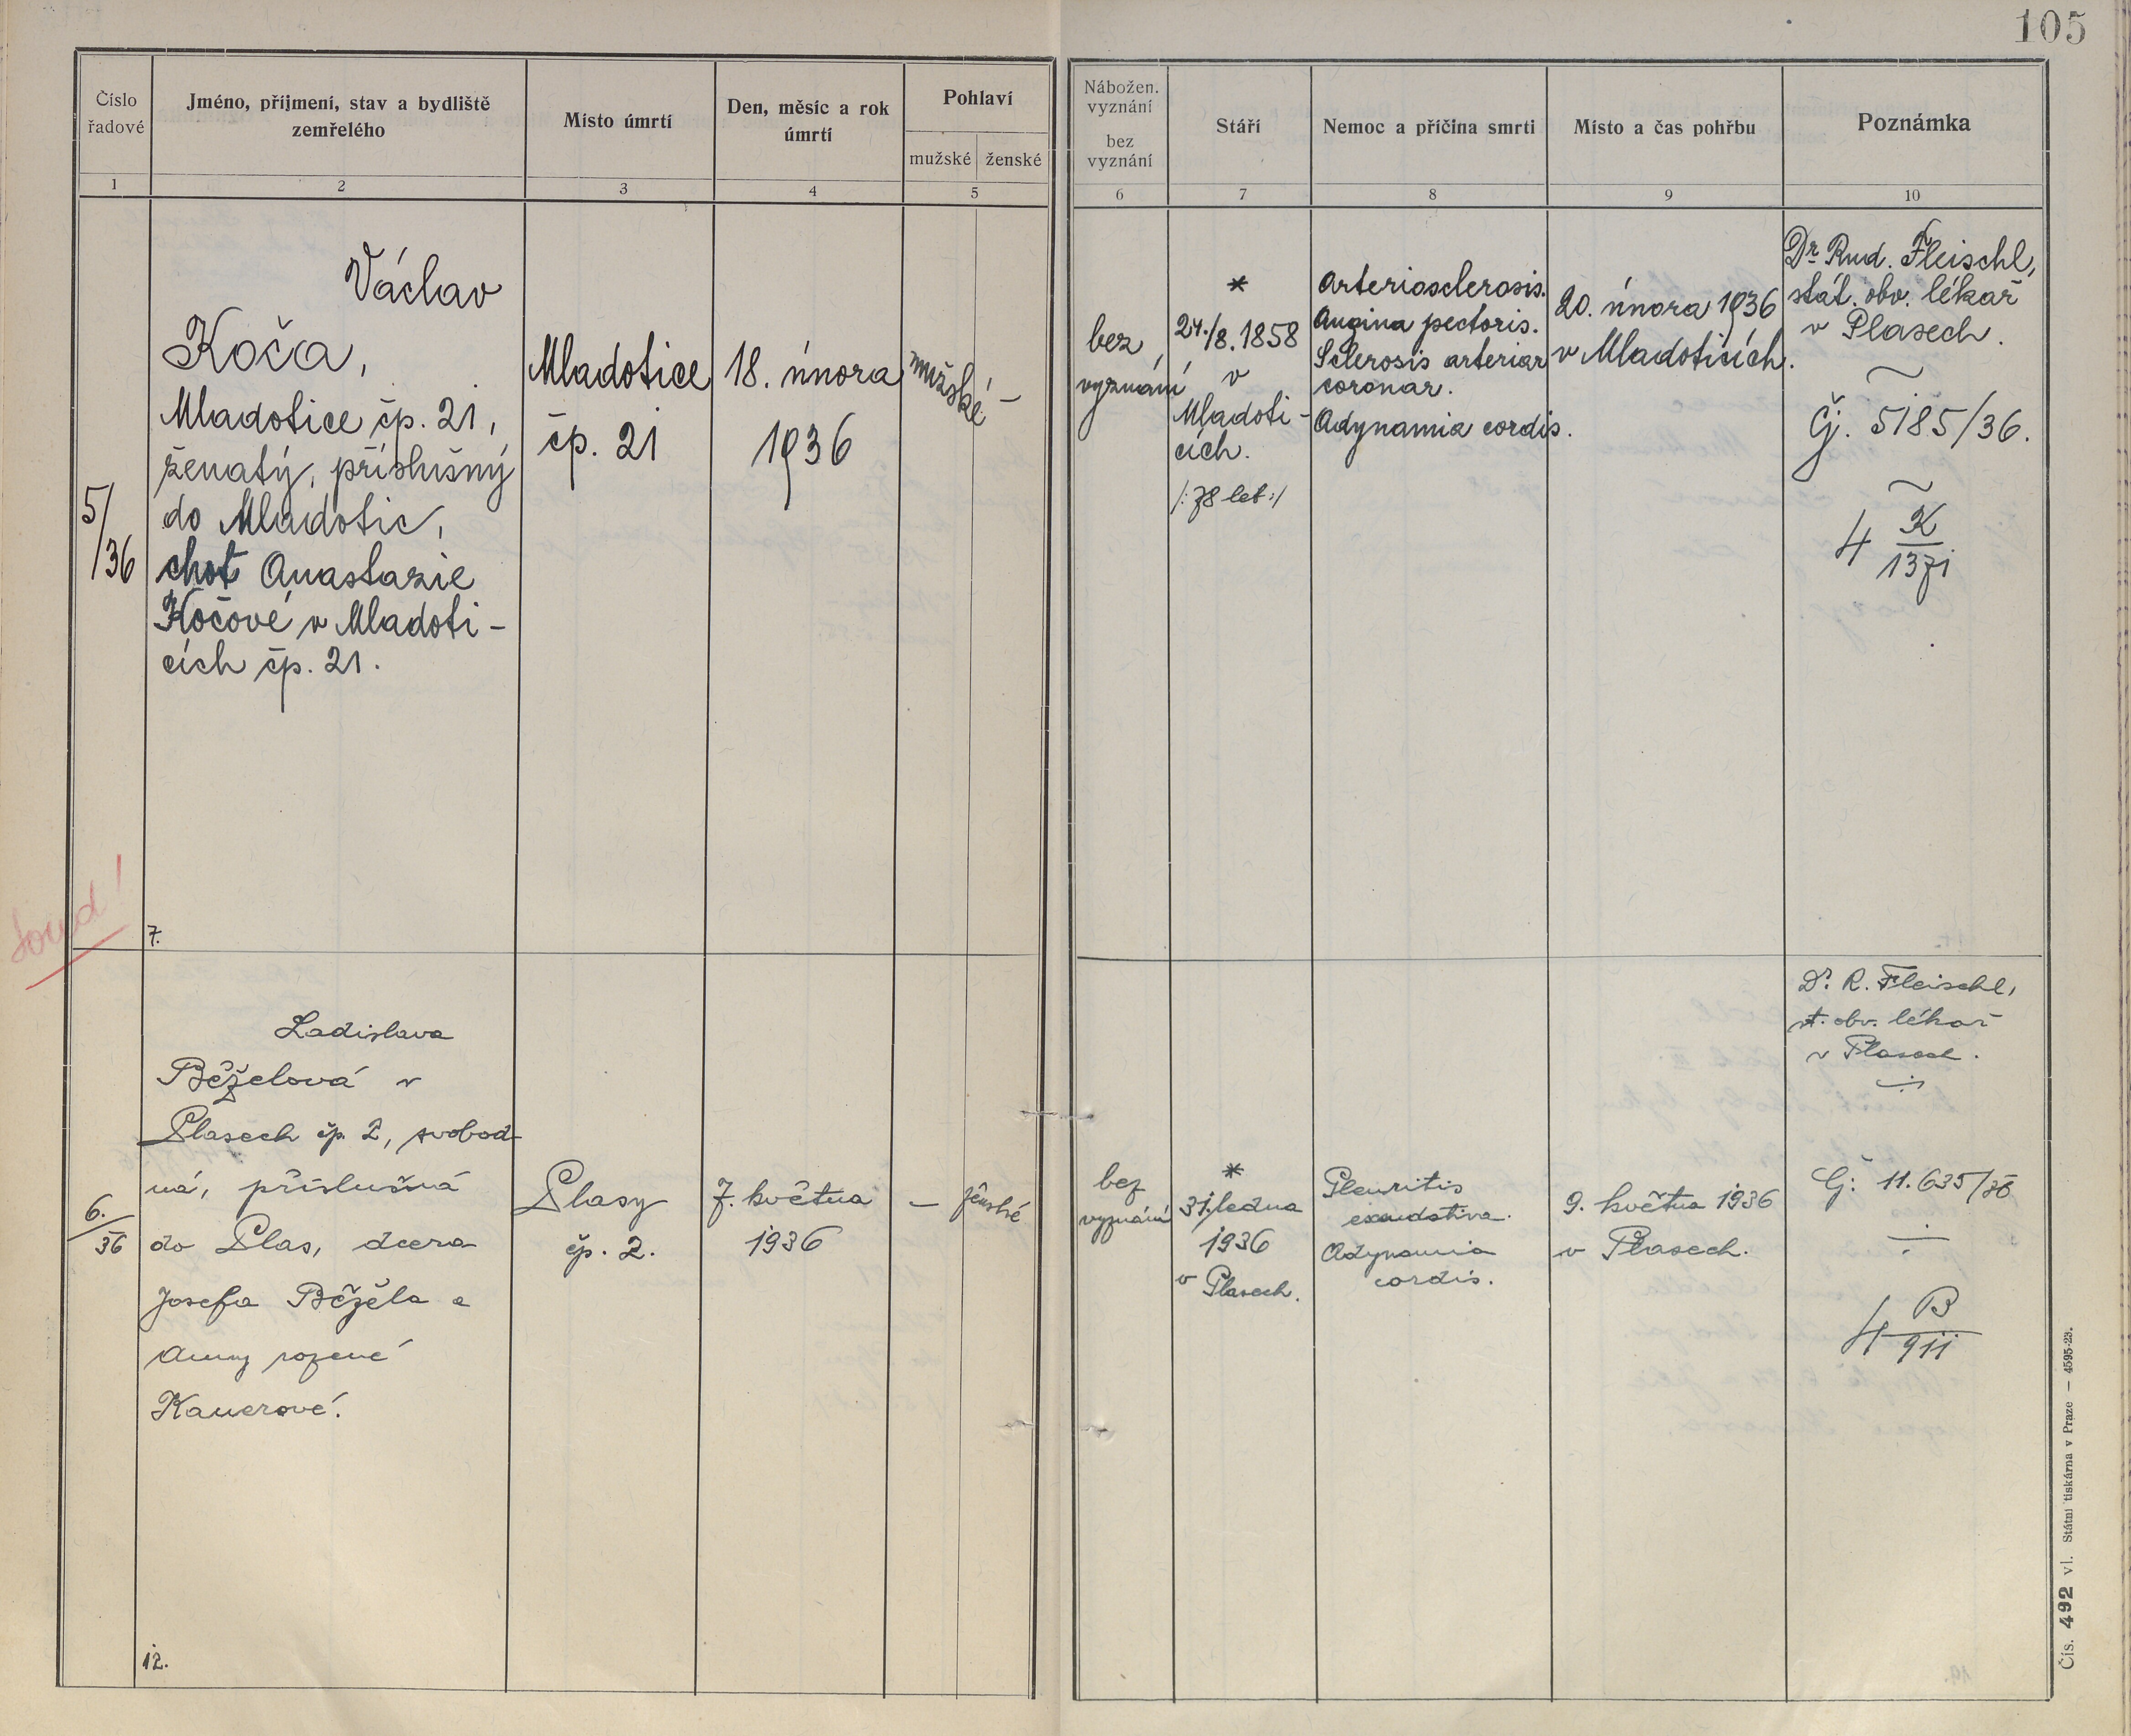 105
Číslo
řadové
Jméno, příjmení, stav a bydliště
zemřelého
Místo úmrtí
Den, měsíc a rok
úmrtí
Pohlaví
mužské
ženské
Nábožen.
vyznání
bez
vyznání
Stáří
Nemoc a příčina smrti
Místo a čas pohřbu
Poznámka
1
2
3
4
5
6
7
8
9
10
5/36
Václav
Koča,
Mladotice čp. 21,
ženatý, příslušný
do Mladotic,
choť Anastazie
Kočové v Mladoti-
cích čp. 21.
7.
Mladotice
čp. 21
18. února
1936
mužské
–
bez
vyznání
*
24./8. 1858
v
Mladoti-
cích.
/: 78 let :/
Arteriosclerosis.
Angina pectoris.
Sclerosis arteriar
coronar.
Adynamia cordis.
20. února 1936
v Mladoticích.
Dr Rud. Fleischl,
stát. obv. lékař
v Plasech.
Čj. 5185/36.
4 K
1371
soud!
6./36
Ladislava
Běželová v
Plasech čp. 2, svobod-
ná, příslušná
do Plas, dcera
Josefa Běžela a
Anny rozené
Kauerové.
12.
Plasy
čp. 2.
7. května
1936
–
ženské
bez
vyznání
*
31. ledna
1936
v Plasech.
Pleuritis
exsudativa.
Adynamia
cordis.
9. května 1936
v Plasech.
Dr. R. Fleischl,
st. obv. lékař
v Plasech.
Čj: 11.635/36
4 B
911
Čís. 492 vl. Státní tiskárna v Praze — 4595-23.